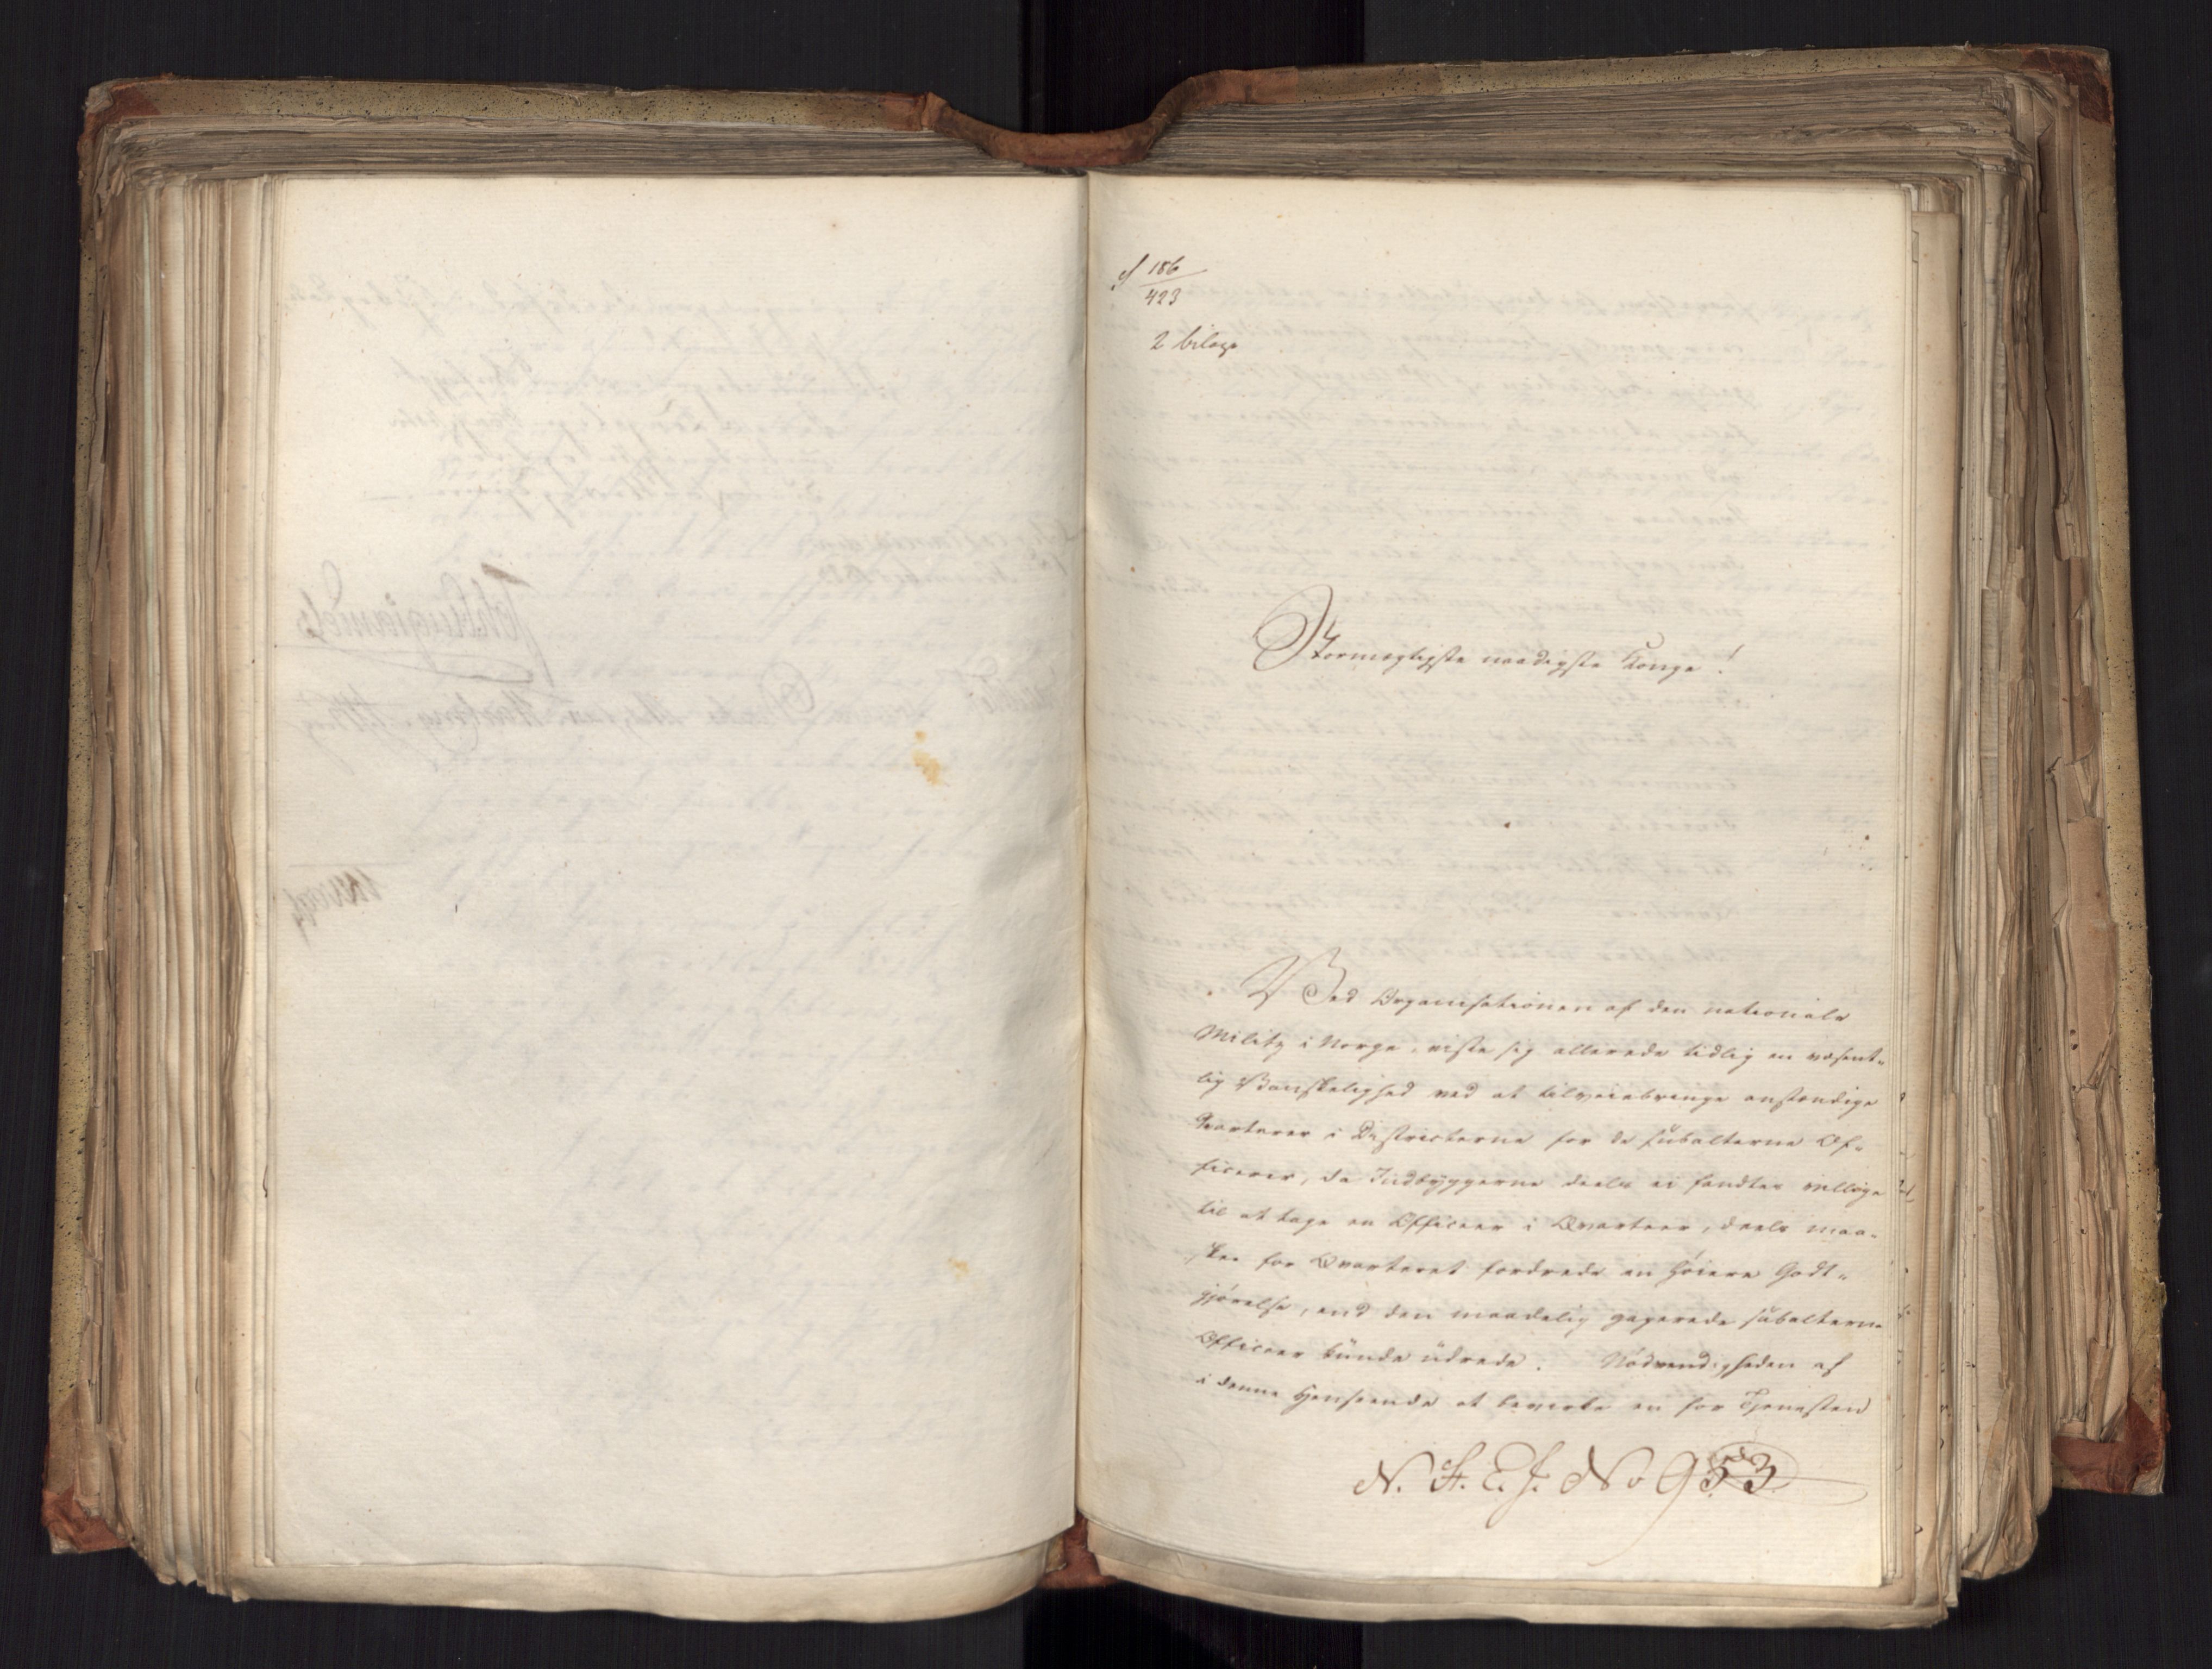 186
423
2 bilage
Stormægtigste naadigste Konge!
Ved Organisationen af den nationale
Militz i Norge, viste sig allerede tidlig en væsent-
lig Vanskelighed ved at tilveiebringe anstændige
Qvarterer i Districterne for de subalterne Of-
ficerer, da Indbyggerne deels ei fandtes villige
til at tage en Officeer i Qvarteer, deels maa-
skee for Qvarteret fordrede en høiere Godt-
gjørelse, end den maadelig gagerede subalterne
Officeer kunde udrede. Nødvendigheden af
i denne Henseende at bevirke en for Tjenesten
N. St. E. J. No 953